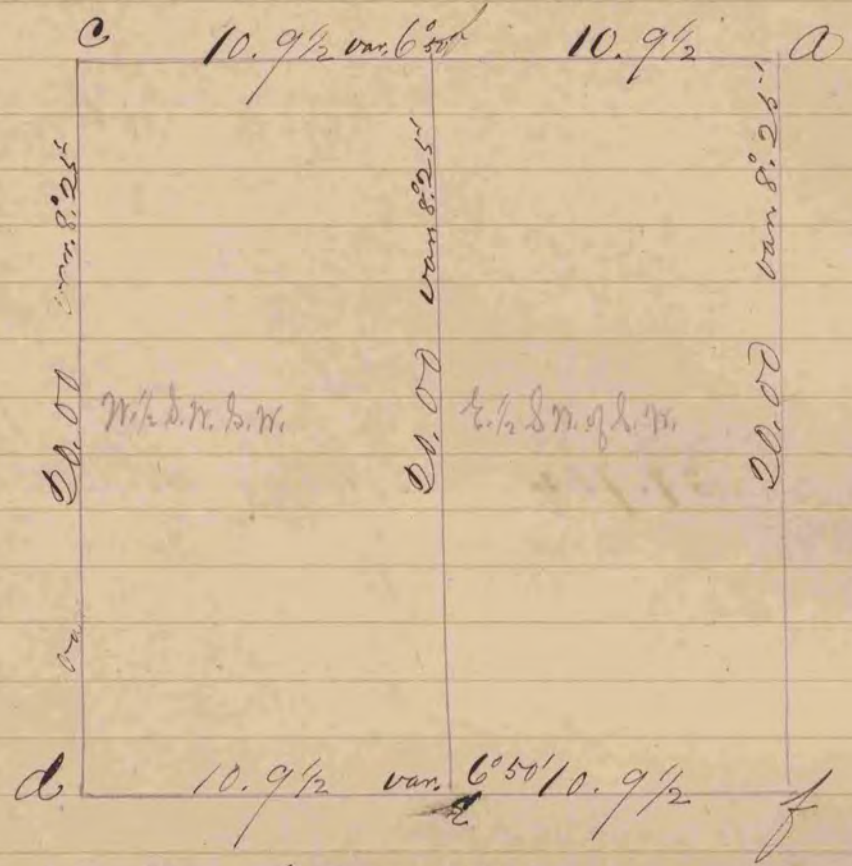 c 10. 9 1/2 var. 6° 50' 10. 9 1/2 a
20.00 var. 8° 25'
20.00 var 8° 25'
20.00 var 8° 25'
W. 1/2 S.W. S.W.
E. 1/2 S.W. of S.W.
d 10. 9 1/2 var. 6° 50' 10. 9 1/2 f